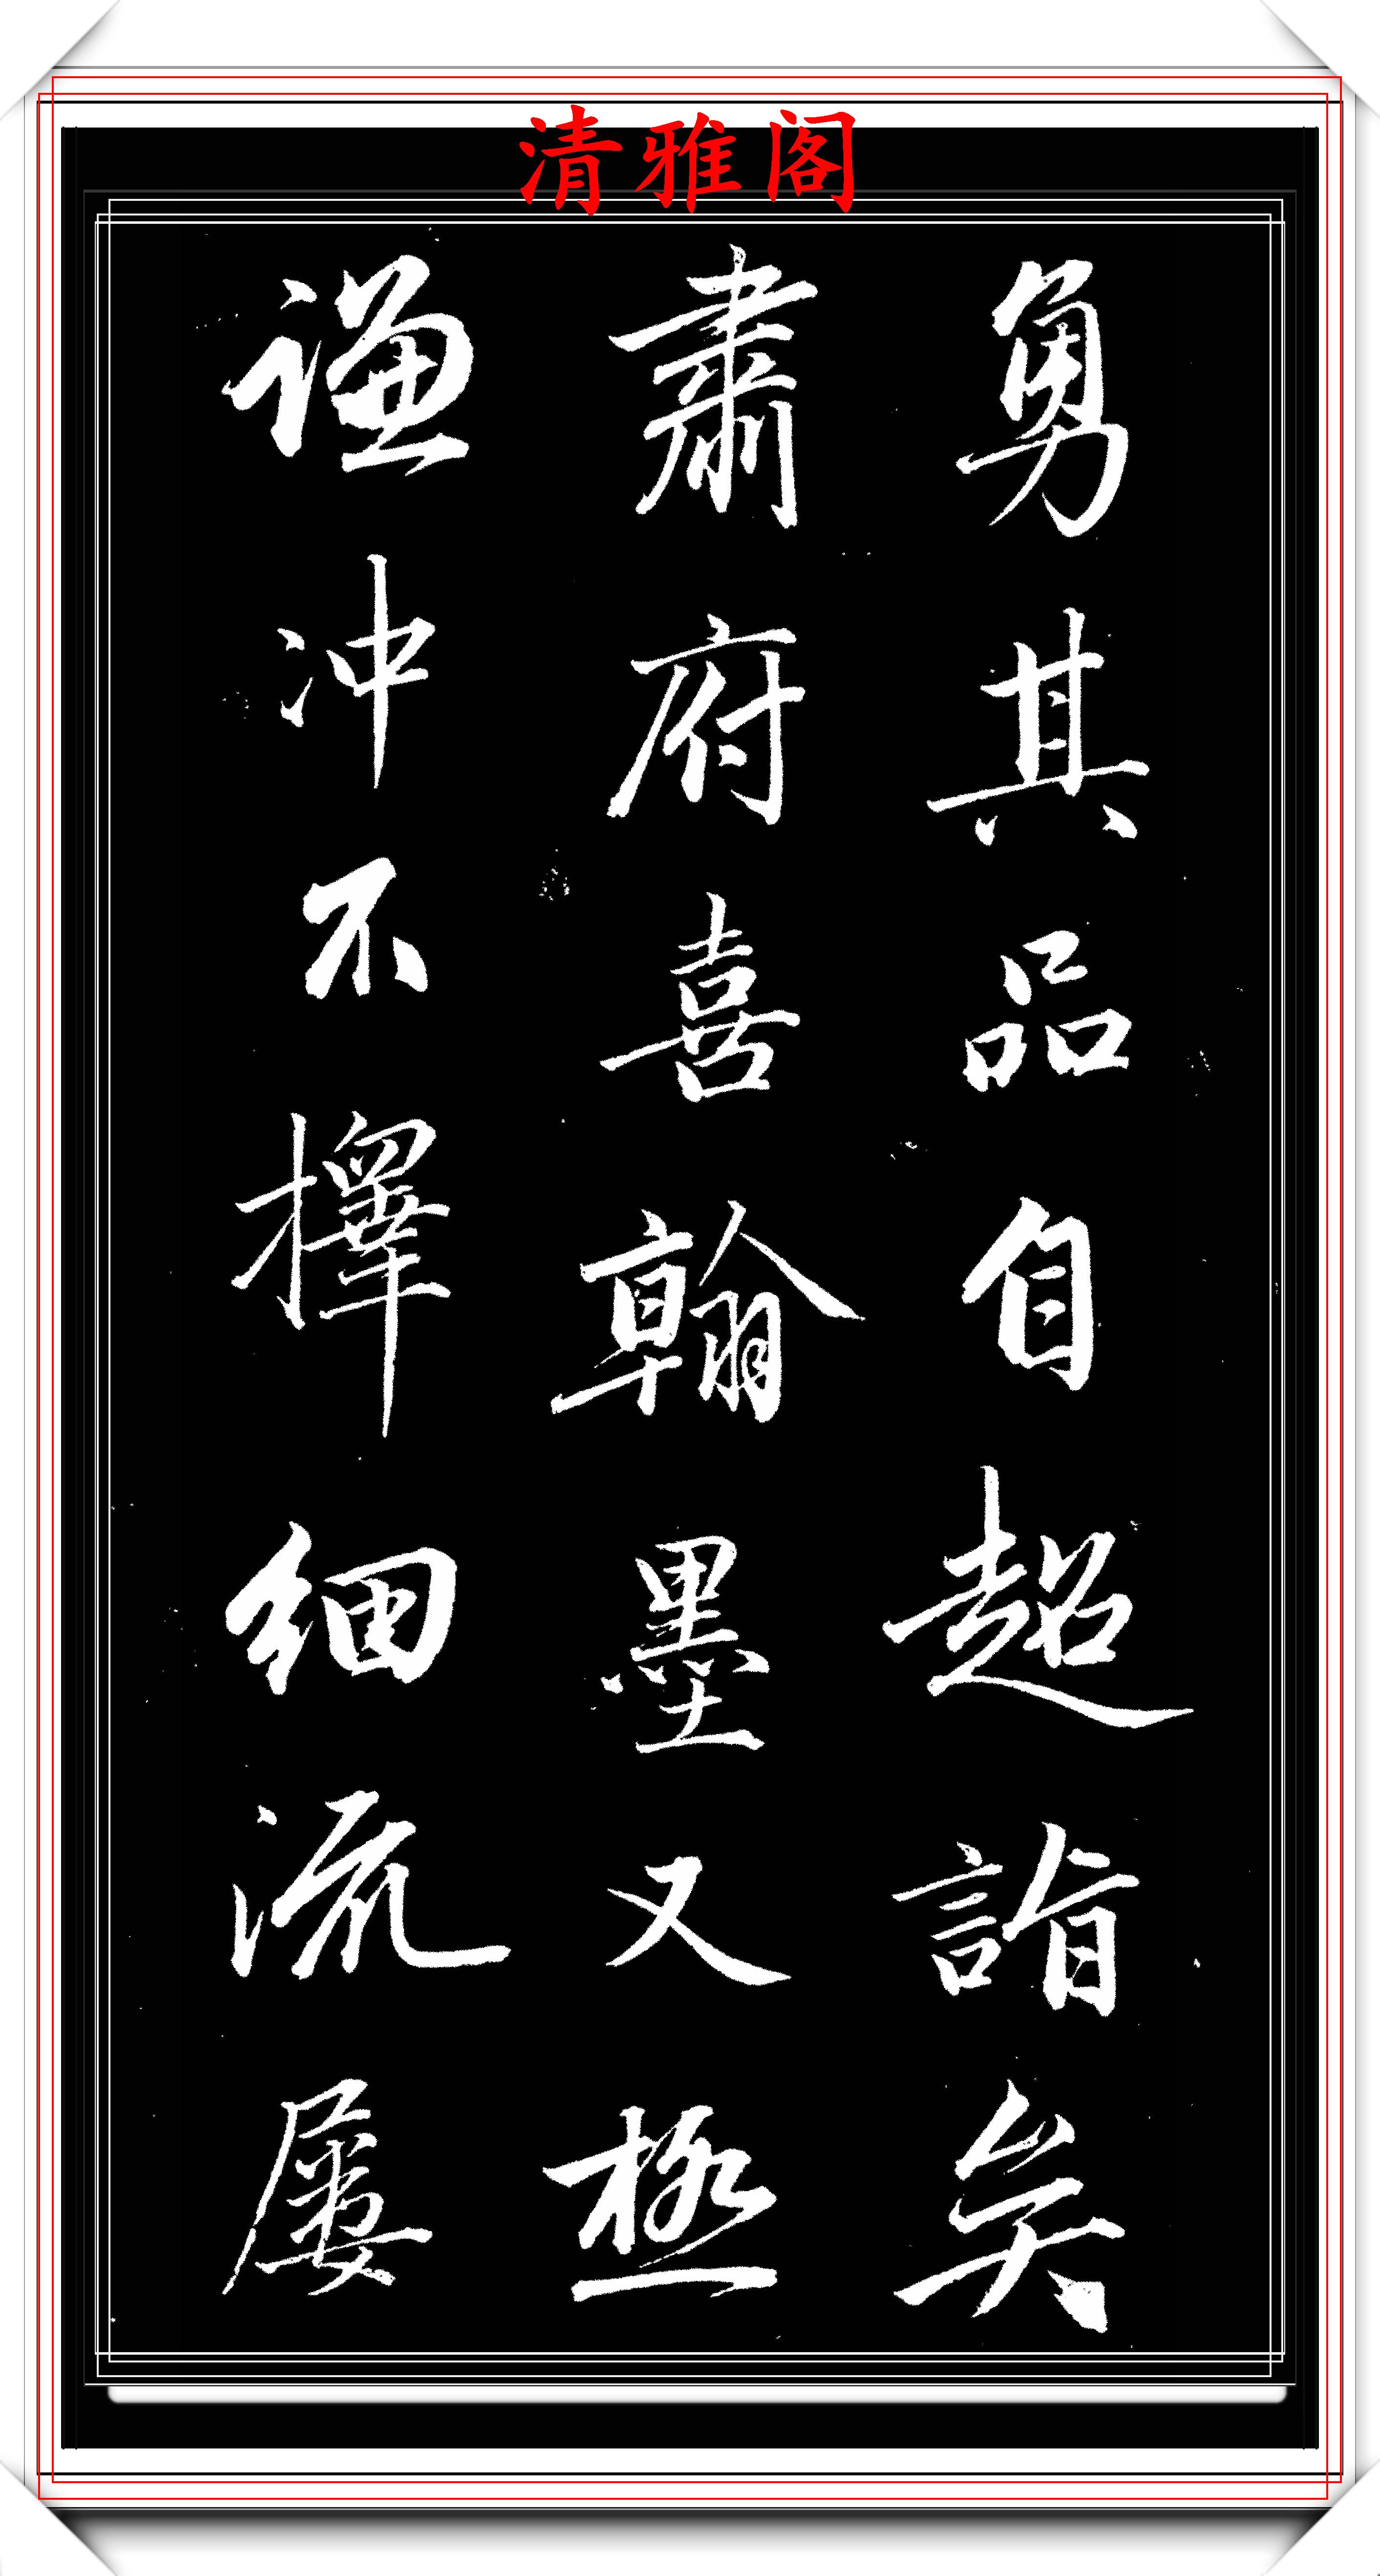 清雅阁
勇其品自超詣矣
肅府喜翰墨又極
謙冲不擇細流屡